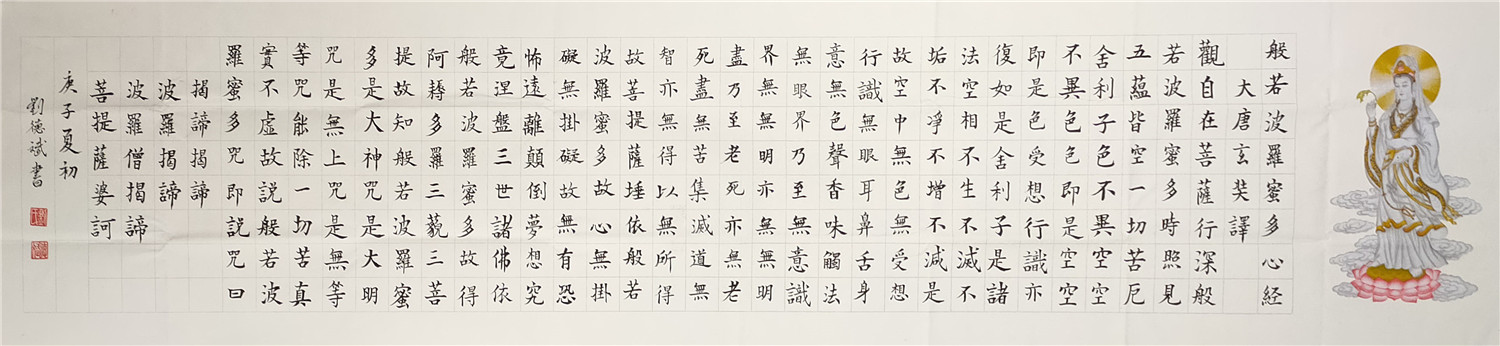 般若波羅蜜多心経
大唐玄奘譯
觀自在菩薩行深般
若波羅蜜多時照見
五蘊皆空一切苦厄
舍利子色不異空空
不異色色即是空空
即是色受想行識亦
復如是舍利子是諸
法空相不生不滅不
垢不凈不增不減是
故空中無色無受想
行識無眼耳鼻舌身
意無色聲香味觸法
無眼界乃至無意識
界無無明亦無無明
盡乃至老死亦無老
死盡無苦集滅道無
智亦無得以無所得
故菩提薩埵依般若
波羅蜜多故心無掛
礙無掛礙故無有恐
怖遠離顛倒夢想究
竟涅盤三世諸佛依
般若波羅蜜多故得
阿耨多羅三藐三菩
提故知般若波羅蜜
多是大神咒是大明
咒是無上咒是無等
等咒能除一切苦真
實不虛故説般若波
羅蜜多咒即説咒曰
揭諦揭諦
波羅揭諦
波羅僧揭諦
菩提薩婆訶
庚子夏初
劉德斌書